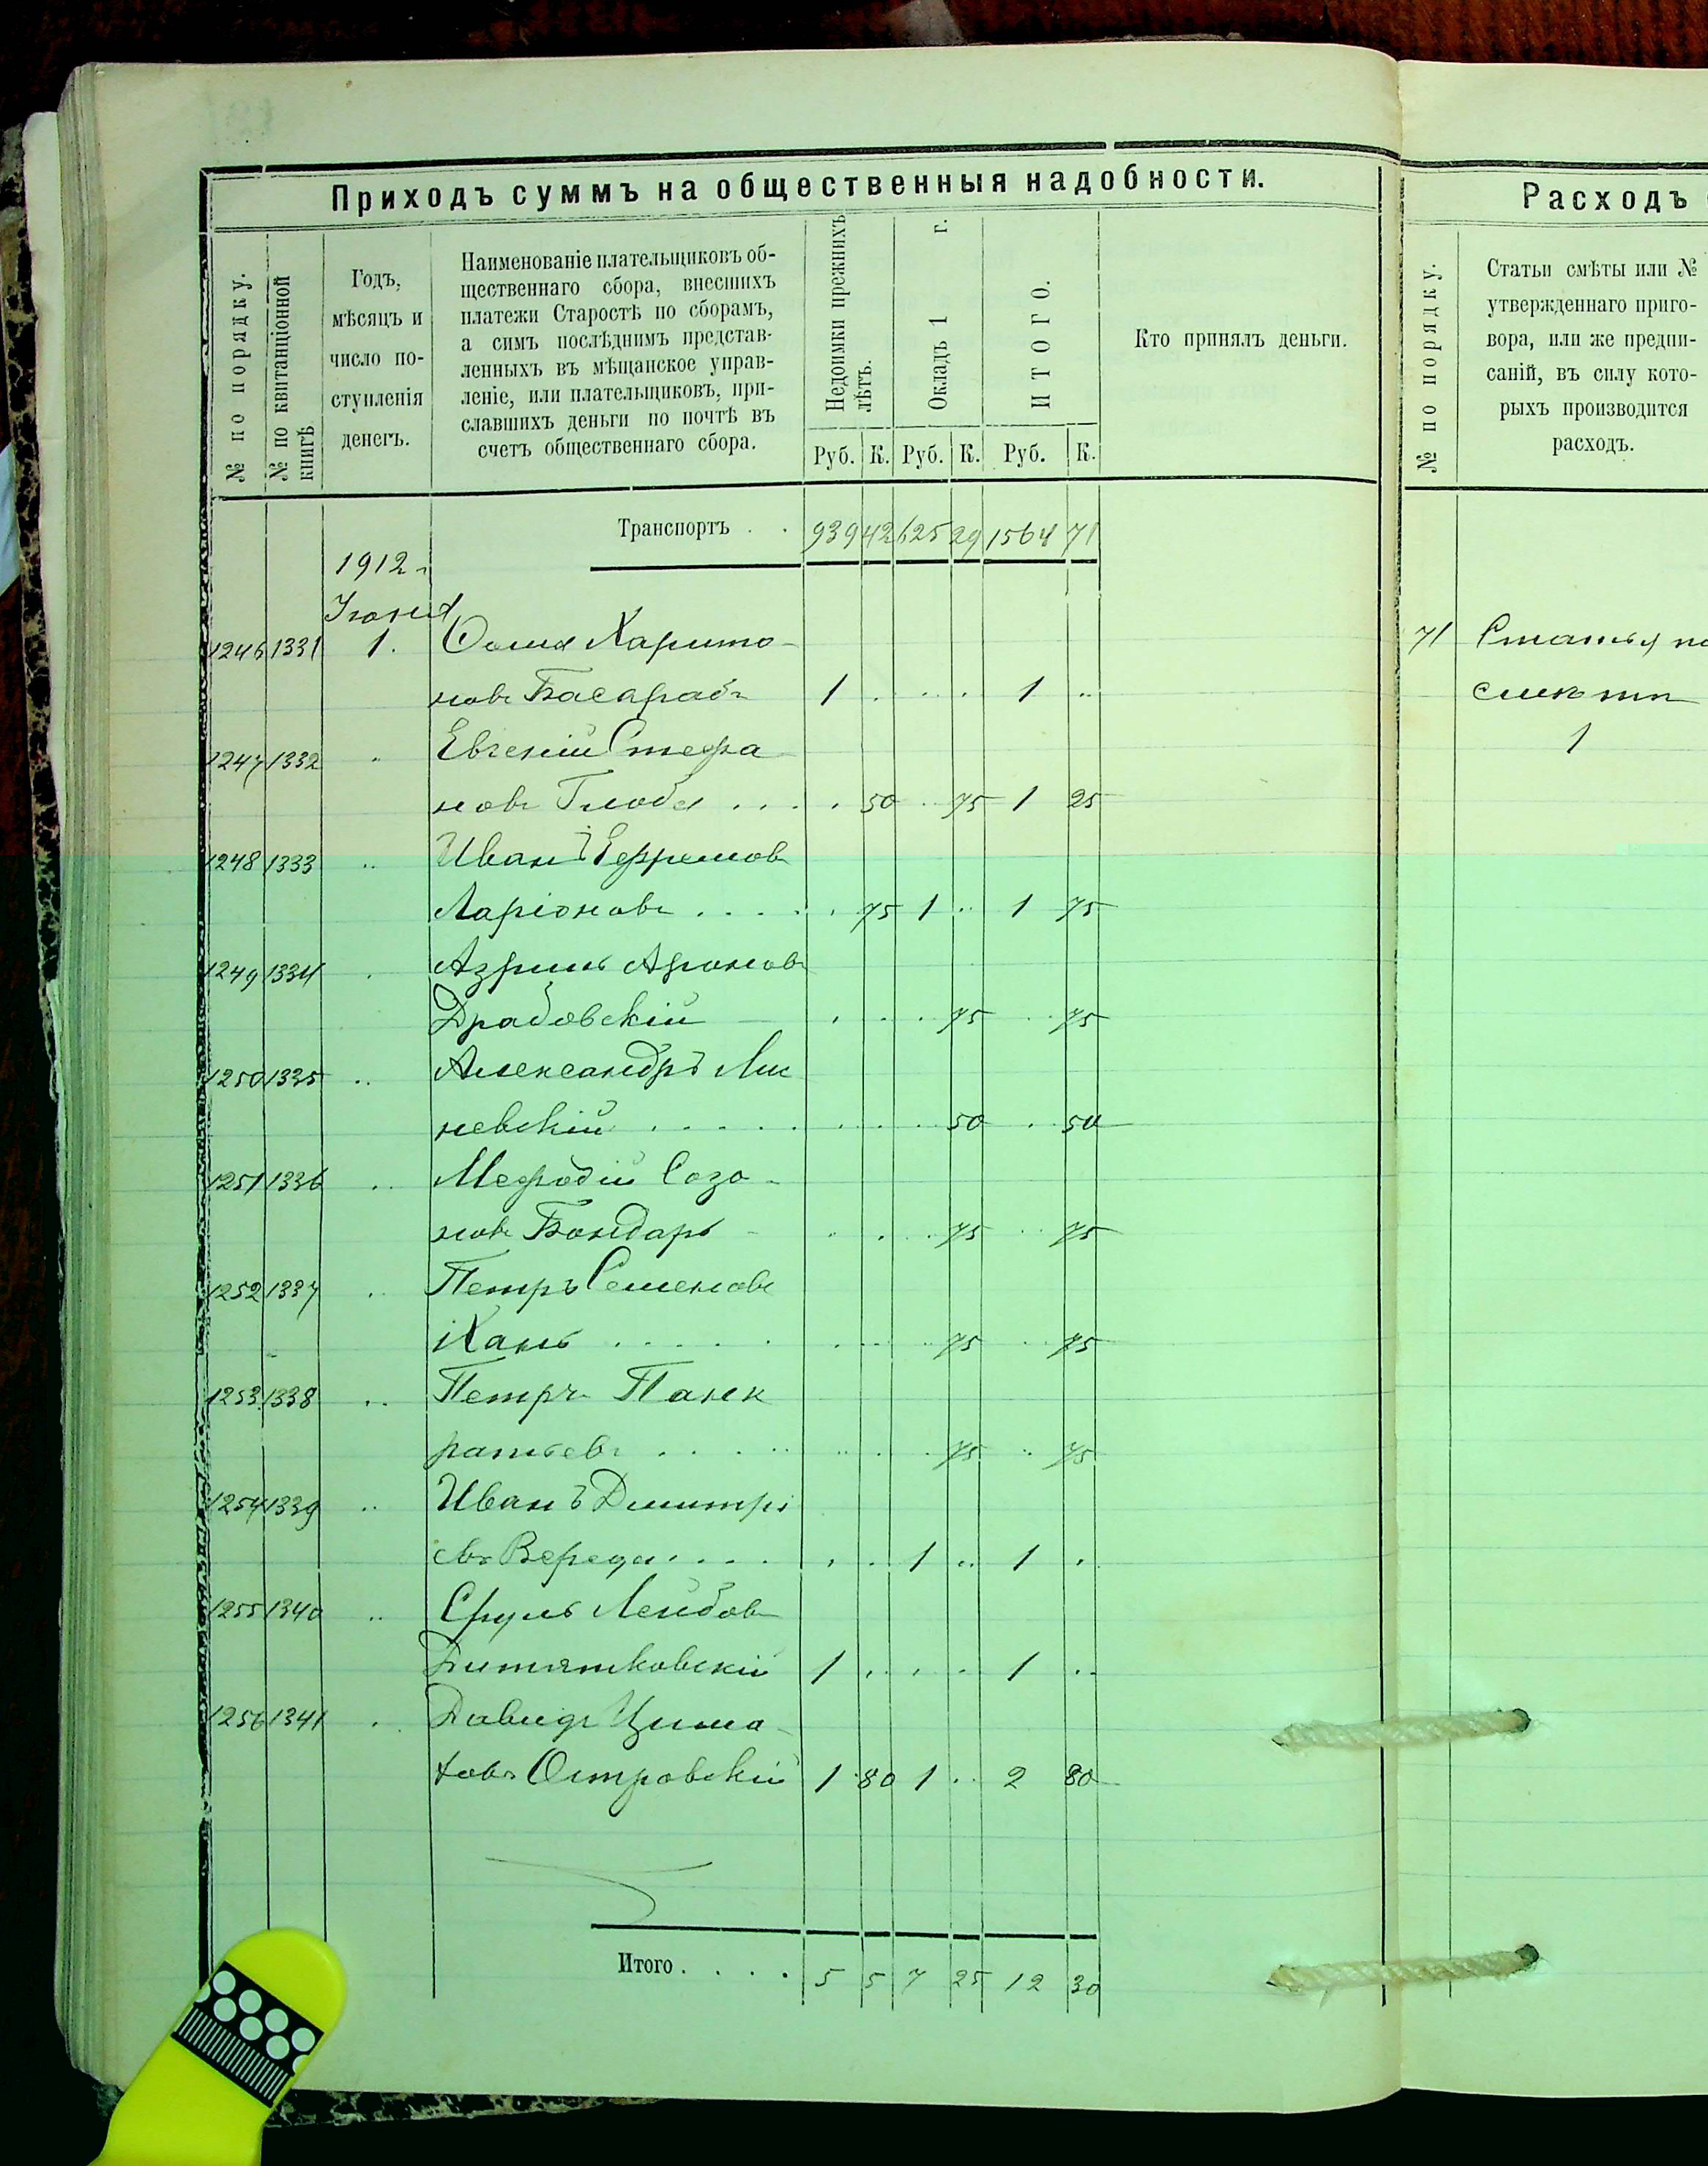 Приходъ суммъ на общественныя надобности.
№ по порядку.
№ по квитанціонной книгѣ
Годъ,
мѣсяцъ и
число по-
ступленія
денегъ.
Наименованіе плательщиковъ об-
щественнаго сбора, внесшихъ
платежи Старостѣ по сборамъ,
а симъ послѣднимъ представ-
ленныхъ въ мѣщанское управ-
леніе, или плательщиковъ, при-
славшихъ деньги по почтѣ въ
счетъ общественнаго сбора.
Недоимки прежнихъ лѣтъ.
Окладъ 1 г.
ИТОГО.
Кто принялъ деньги.
Руб. К. Руб. К. Руб. К.
Транспортъ . . 939 42 625 29 1564 71
1912
Іюня
1246 1331 1. Харито-
новъ Басарабъ 1 . . . 1 ..
1247 1332 " Евгеній Стефа
новъ Глоба . . . . 50 .. 75 1 25
1248 1333 .. Иванъ Ефремовъ
Ларіоновъ . . . . . 75 1 .. 1 75
1249 1334 . Азриль Ароновъ
Драбовскій . . . 75 .. 75
1250 1335 .. Александръ Ли
невскій . . . . . . . . 50 . 50
1251 1336 .. Мефодій Созо-
новъ Бондарь - .. . . 75 .. 75
1252 1337 .. Петръ Семеновъ
Кань . . . . . . . .. 75 .. 75
1253 1338 .. Петръ Панк
ратьевъ . . . .. .. . . 75 .. 75
1254 1339 .. Иванъ Дмитрі
евъ Вереда . . . . . . 1 .. 1 .
1255 1340 .. Сруль Лейбовъ
Дитятковскій 1 . . . 1 ..
1256 1341 . Давидъ
Островскій 1 80 1 .. 2 80
Итого . . . . 5 5 7 25 12 30
Расходъ
№ по порядку.
Статьи смѣты или №
утвержденнаго приго-
вора, или же предпи-
саній, въ силу кото-
рыхъ производится
расходъ.
71 Статья по
смѣтѣ
1